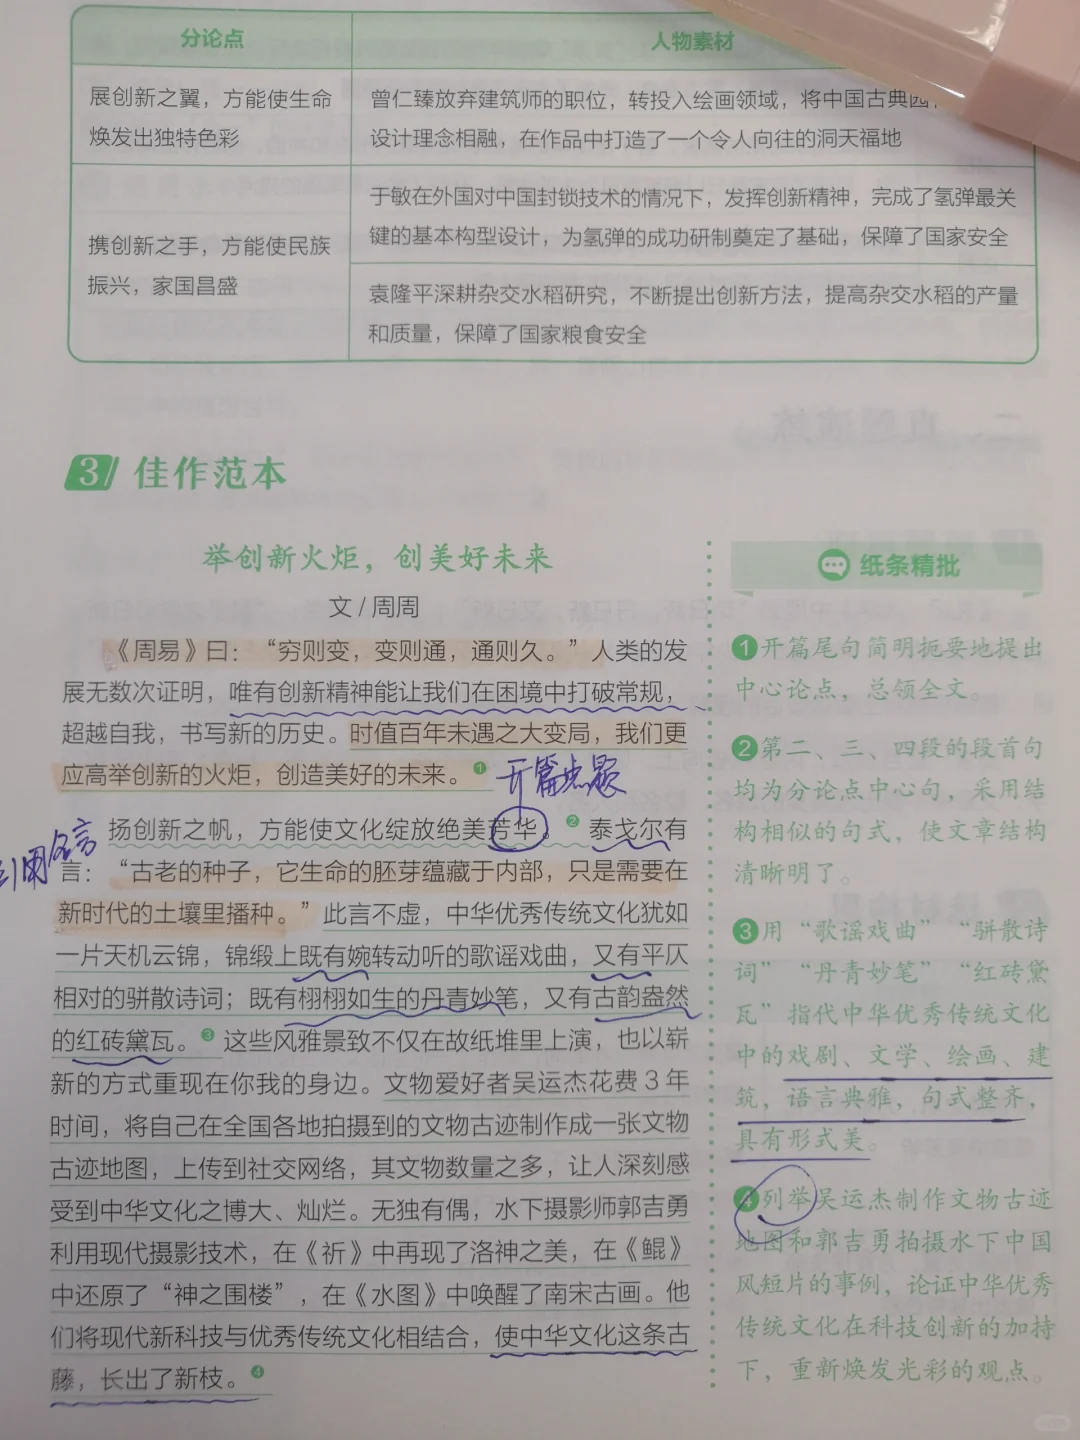 分论点
人物素材
展创新之翼，方能使生命
焕发出独特色彩
曾仁臻放弃建筑师的职位，转投入绘画领域，将中国古典园
设计理念相融，在作品中打造了一个令人向往的洞天福地
携创新之手，方能使民族
振兴，家国昌盛
于敏在外国对中国封锁技术的情况下，发挥创新精神，完成了氢弹最关
键的基本构型设计，为氢弹的成功研制奠定了基础，保障了国家安全
袁隆平深耕杂交水稻研究，不断提出创新方法，提高杂交水稻的产量
和质量，保障了国家粮食安全
3 佳作范本
举创新火炬，创美好未来
文/周周
《周易》曰：“穷则变，变则通，通则久。”人类的发
展无数次证明，唯有创新精神能让我们在困境中打破常规，
超越自我，书写新的历史。时值百年未遇之大变局，我们更
应高举创新的火炬，创造美好的未来。1
开篇点题
扬创新之帆，方能使文化绽放绝美芳华。2 泰戈尔有
引用名言
言：“古老的种子，它生命的胚芽蕴藏于内部，只是需要在
新时代的土壤里播种。”此言不虚，中华优秀传统文化犹如
一片天机云锦，锦缎上既有婉转动听的歌谣戏曲，又有平仄
相对的骈散诗词；既有栩栩如生的丹青妙笔，又有古韵盎然
的红砖黛瓦。3 这些风雅景致不仅在故纸堆里上演，也以崭
新的方式重现在你我的身边。文物爱好者吴运杰花费3年
时间，将自己在全国各地拍摄到的文物古迹制作成一张文物
古迹地图，上传到社交网络，其文物数量之多，让人深刻感
受到中华文化之博大、灿烂。无独有偶，水下摄影师郭吉勇
利用现代摄影技术，在《祈》中再现了洛神之美，在《鲲》
中还原了“神之围楼”，在《水图》中唤醒了南宋古画。他
们将现代新科技与优秀传统文化相结合，使中华文化这条古
藤，长出了新枝。4
纸条精批
1 开篇尾句简明扼要地提出
中心论点，总领全文。
2 第二、三、四段的段首句
均为分论点中心句，采用结
构相似的句式，使文章结构
清晰明了。
3 用“歌谣戏曲”“骈散诗
词”“丹青妙笔”“红砖黛
瓦”指代中华优秀传统文化
中的戏剧、文学、绘画、建
筑，语言典雅，句式整齐，
具有形式美。
4 列举吴运杰制作文物古迹
地图和郭吉勇拍摄水下中国
风短片的事例，论证中华优秀
传统文化在科技创新的加持
下，重新焕发光彩的观点。